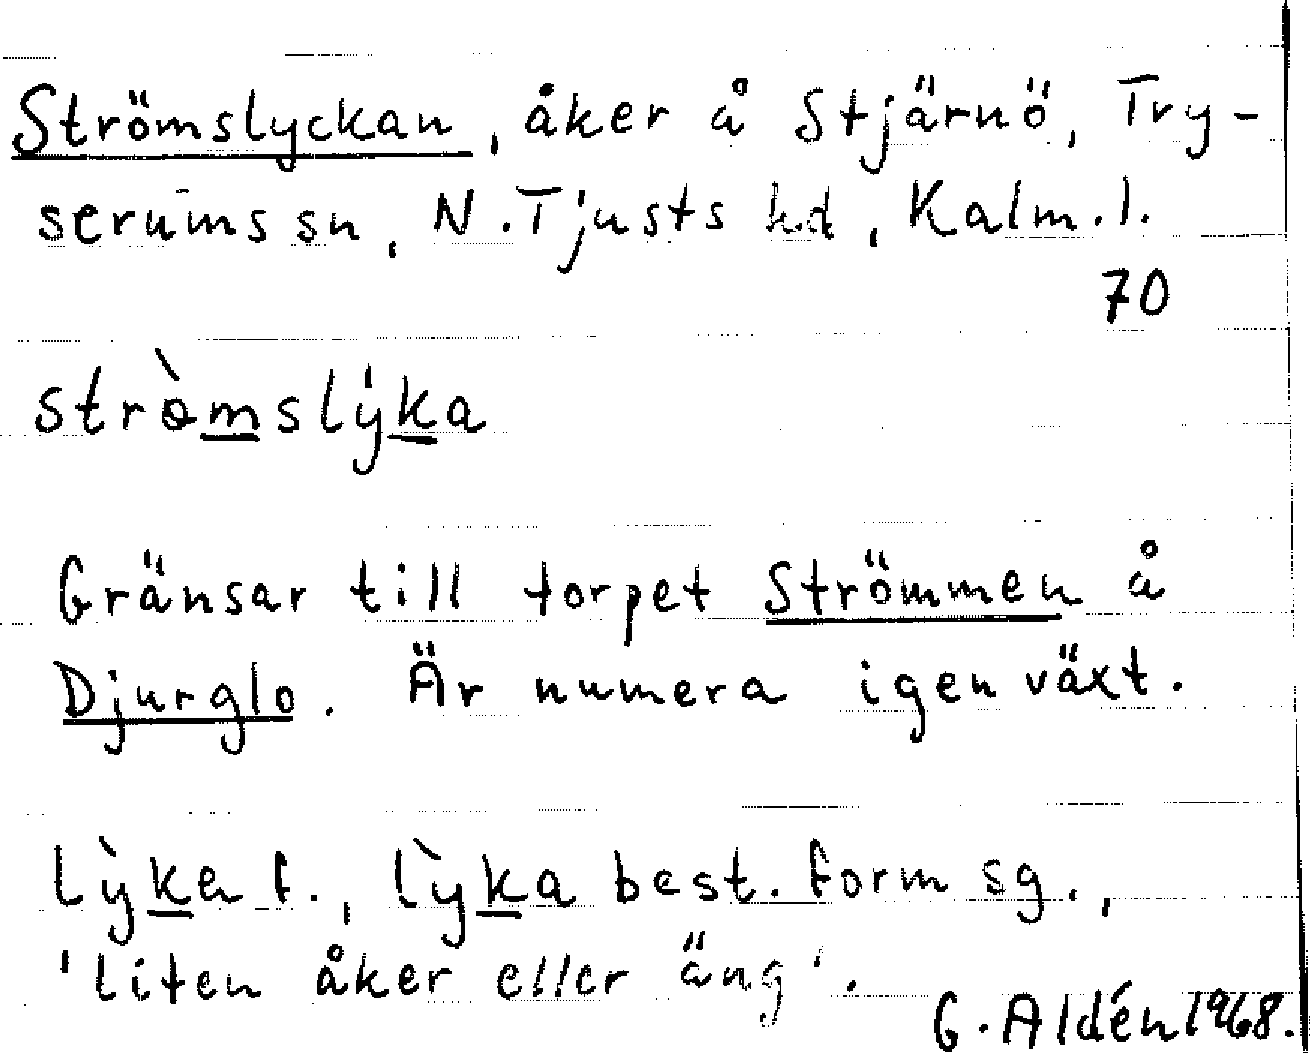 Strömslyckan, åker å Stjärnö, Try-
serums sn, N. Tjusts hd, Kalm. l.
70
strɵ̀mslýka
Gränsar till torpet Strömmen å
Djurglo. Är numera igenväxt.
lỳkɐ f., lỳka best. form sg.,
'liten åker eller äng'.
G. Aldén 1968.